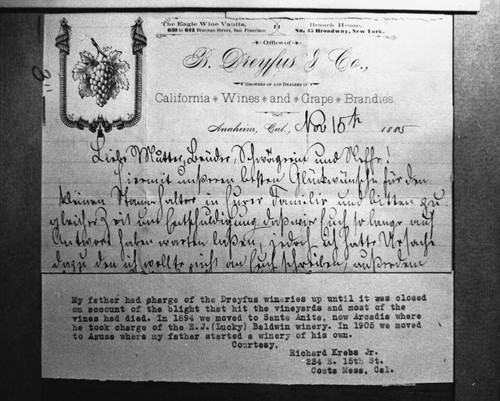 The Eagle Wine Vaults,
630 to 642 Brannan Street, San Francisco
Branch House,
No. 45 Broadway, New York.
Office of
B. Dreyfus & Co.,
Growers of and Dealers in
California Wines and Grape Brandies.
Anaheim, Cal., Nov 10th 1885
Liebe Mutter, Brüder, Schwägerin und Neffe!
Hiermit unseren besten Glückwünsche für den
kleinen Stammhalter in Eurer Familie und bitten zu
gleicher Zeit um Entschuldigung daß wir Euch so lange auf
Antwort haben warten laßen, jedoch ich hatte Ursache
dazu den ich wollte nicht an Euch schreiben, außerdem
My father had charge of the Dreyfus wineries up until it was closed
on account of the blight that hit the vineyards and most of the
vines had died. In 1894 we moved to Santa Anita, now Arcadia where
he took charge of the E.J.(Lucky) Baldwin winery. In 1905 we moved
to Azusa where my father started a winery of his own.
Courtesy,
Richard Krebs Jr.
234 E. 15th St.
Costa Mesa, Cal.